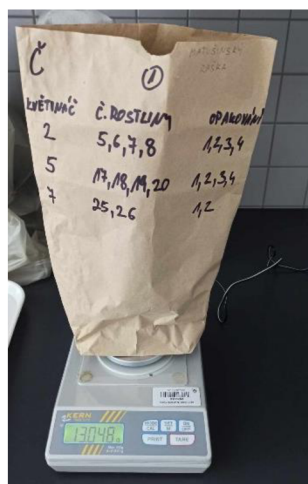 Č ①
KVĚTINÁČ Č. ROSTLINY OPAKOVÁNÍ
2 5,6,7,8 1,2,3,4
5 17,18,19,20 1,2,3,4
7 25,26 1,2
KERN
130.48
PRINT